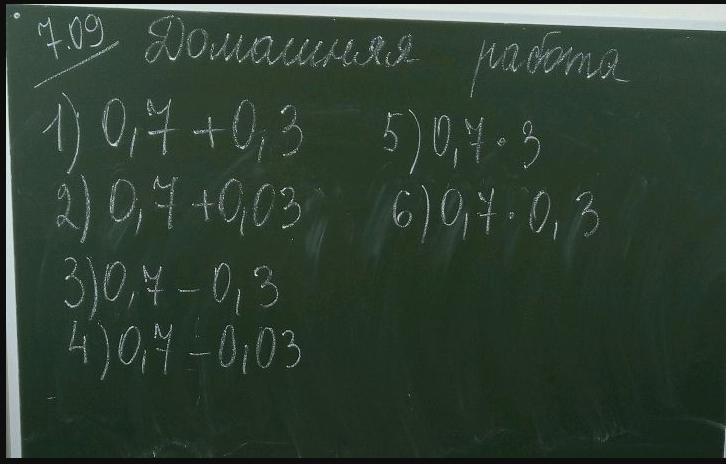 7.09 Домашняя работа
1) 0,7 + 0,3
2) 0,7 + 0,03
3) 0,7 - 0,3
4) 0,7 - 0,03
5) 0,7 · 3
6) 0,7 · 0,3